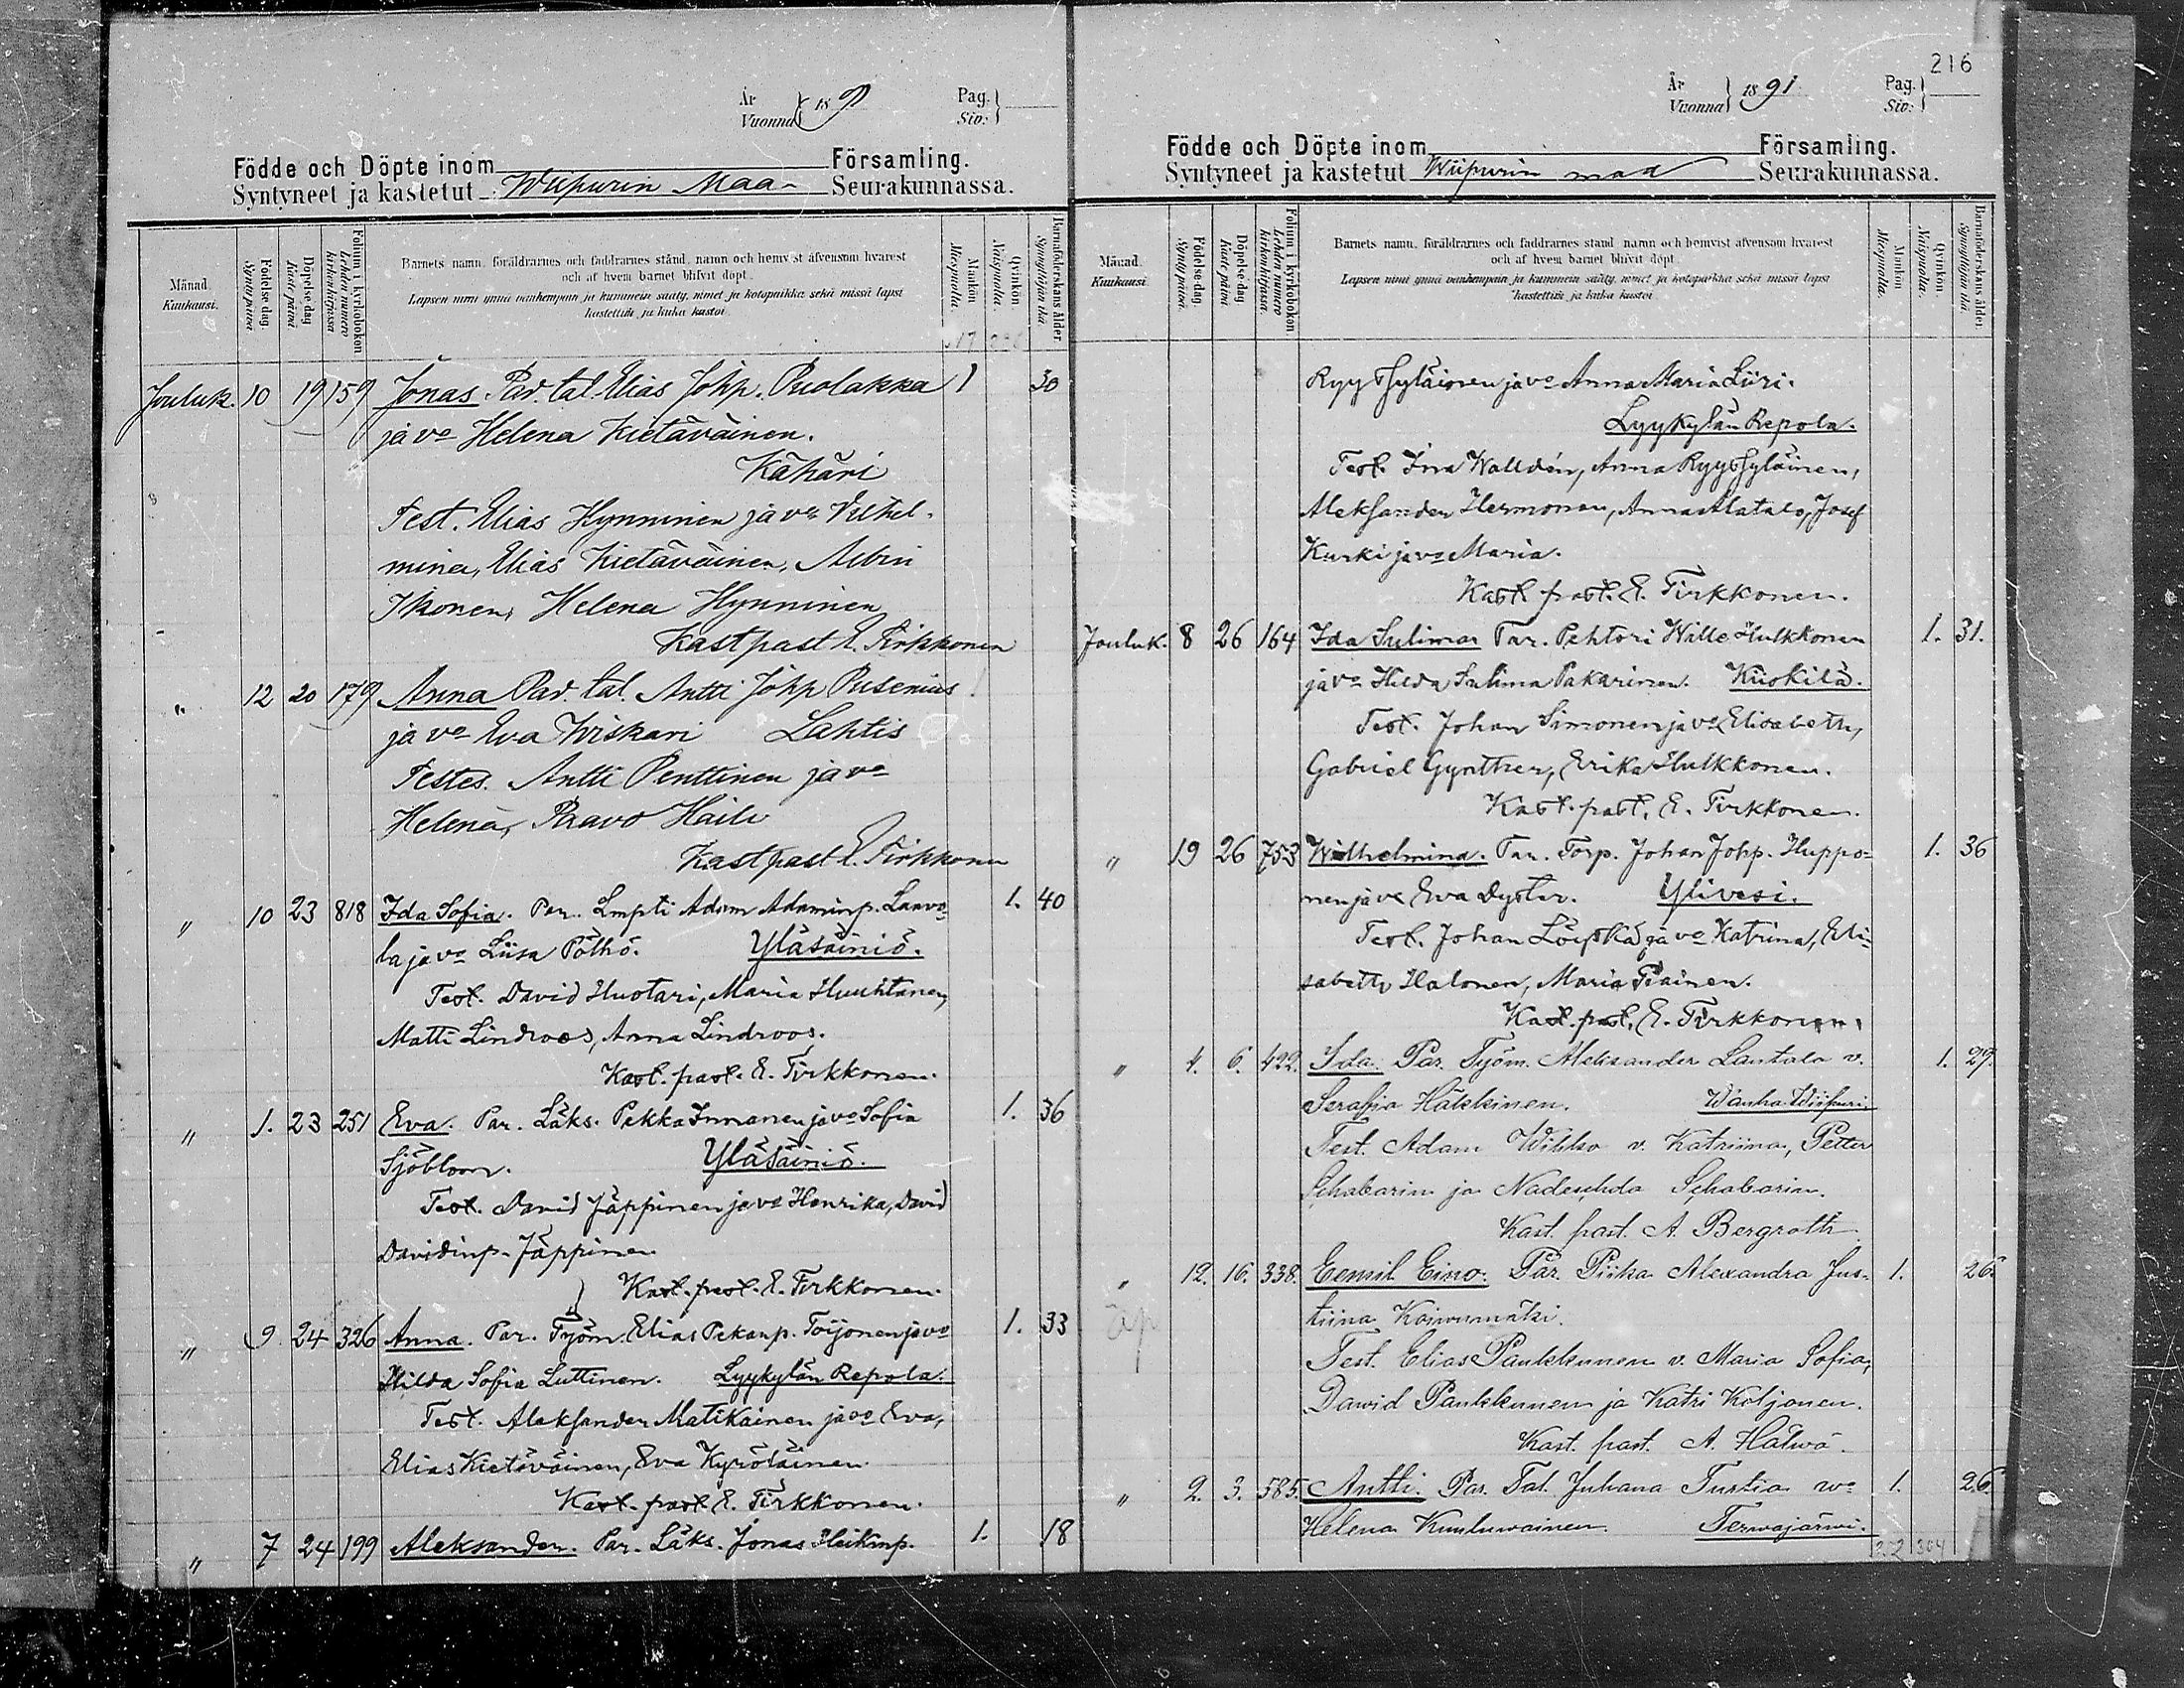 År
Vuonna } 1891
Pag.
Siv: }
Födde och Döpte inom Församling.
Syntyneet ja kastetut Wiipurin Maa- Seurakunnassa.
Månad.
Kuukausi.
Födelse dag
Syntypäivä.
Döpelse dag
Kaste päivä
Folium i kyrkoboken
Lehden numero
kirkonkirjassa
Barnets namn, föräldrarnes och faddrarnes stånd, namn och hemvist äfvensom hvarest
och af hvem barnet blifvit döpt.
Lapsen nimi ynnä vanhempain ja kummein sääty, nimet ja kotopaikka sekä missä lapsi
kastettiin ja kuka kastoi.
Mankön
Miespuolia.
Qvinkön.
Naispuolia.
Barnaföderskans ålder
Synnyttäjän ikä
Jouluk. 10 19 159 Jonas. Par. tal. Elias Johp. Puolakka 1 30
ja vo Helena Kietäväinen.
Kähäri
Test. Elias Hynninen ja vo Vilhel-
mina, Elias Kietäväinen, Albin
Ikonen, Helena Hynninen
Kast past E. Tirkkonen
" 12 20 179 Anna Par. tal. Antti Johp Pusenius
ja vo Eva Kiiskari Lahtis
Testes. Antti Penttinen ja vo
Helena, Paavo Haili
Kast past E. Tirkkonen
" 10 23 818 Ida Sofia. Par. Lmpti Adam Adaminp. Laavo- 1. 40
la ja vo Liisa Pöthö. Yläsäiniö.
Test. David Huotari, Maria Huuhtanen,
Matti Lindroos, Anna Lindroos.
Kast. past. E. Tirkkonen.
" 1. 23 251 Eva. Par. Läks. Pekka Inmanen ja vo Sofia 1. 36
Sjöblom. Yläsäiniö.
Test. David Jäppinen ja vo Henrika, David
Davidinp. Jäppinen
Kast. past. E. Tirkkonen.
" 9. 24 326 Anna. Par. Työm. Elias Pekanp. Toijonen ja vo 1. 33
Hilda Sofia Luttinen. Lyykylän Repola.
Test. Aleksander Matikainen ja vo Eva,
Elias Kietäväinen, Eva Kyröläinen
Kast. past E. Tirkkonen.
" 7 24 199 Aleksander. Par. Läks. Jonas Heikinp. 1. 18
216
År
Vuonna } 1891
Pag.
Siv: }
Födde och Döpte inom Församling.
Syntyneet ja kastetut Wiipurin maa Seurakunnassa.
Månad.
Kuukausi.
Födelse dag
Synty päivä.
Döpelse dag
Kaste päivä
Folium i kyrkoboken
Lehden numero
kirkonkirjassa.
Barnets namn, föräldrarnes och faddrarnes stånd, namn och hemvist äfvensom hvarest
och af hvem barnet blifvit döpt.
Lapsen nimi ynnä vanhempain ja kummein sääty, nimet ja kotopaikka sekä missä lapsi
kastettiin ja kuka kastoi
Mankön
Miespuolia.
Qvinkön.
Naispuolia.
Barnaföderskans ålder.
Synnyttäjän ikä.
Ryyshyläinen ja vo Anna Maria Liiri.
Lyykylän Repola.
Test. Ina Walldén, Anna Ryyshyläinen,
Aleksander Hermonen, Anna Alatalo, Josef
Kurki ja vo Maria.
Kast. past. E. Tirkkonen.
Jouluk. 8 26 164 Ida Sulima Par. Pehtori Wille Hulkkonen 1. 31.
ja vo Hilda Sulima Pakarinen. Kiiskilä.
Test. Johan Simonen ja vo Elisabeth,
Gabriel Gynther, Erika Hulkkonen.
Kast. past. E. Tirkkonen.
" 19 26 753 Wilhelmina. Par. Torp. Johan Johp. Huppo- 1. 36
nen ja vo Eva Dyster. Ylivesi.
Test. Johan Löyskä ja vo Katrina, Eli-
sabeth Halonen, Maria Piainen.
Kast. past. E. Tirkkonen.
" 4. 6. 422. Ida. Par. Työm. Aleksander Lautala v. 1. 29.
Serafia Häkkinen. Wanha Wiipuri.
Test. Adam Wihko v. Katriina, Petter
Schabarin ja Nadeschda Schabarin.
Kast. past. A. Bergroth
" 12. 16. 338. Eemil Eino. Par. Piika Alexandra Jus- 1. 26.
äp
tiina Koivumäki.
Test. Elias Paukkunen v. Maria Sofia,
Dawid Paukkunen ja Katri Koljonen.
Kast. past. A. Hätwä.
" 2. 3. 585. Antti. Par. Tal. Juhana Turtia vo 1. 26.
Helena Kuuluwainen. Terwajärwi.